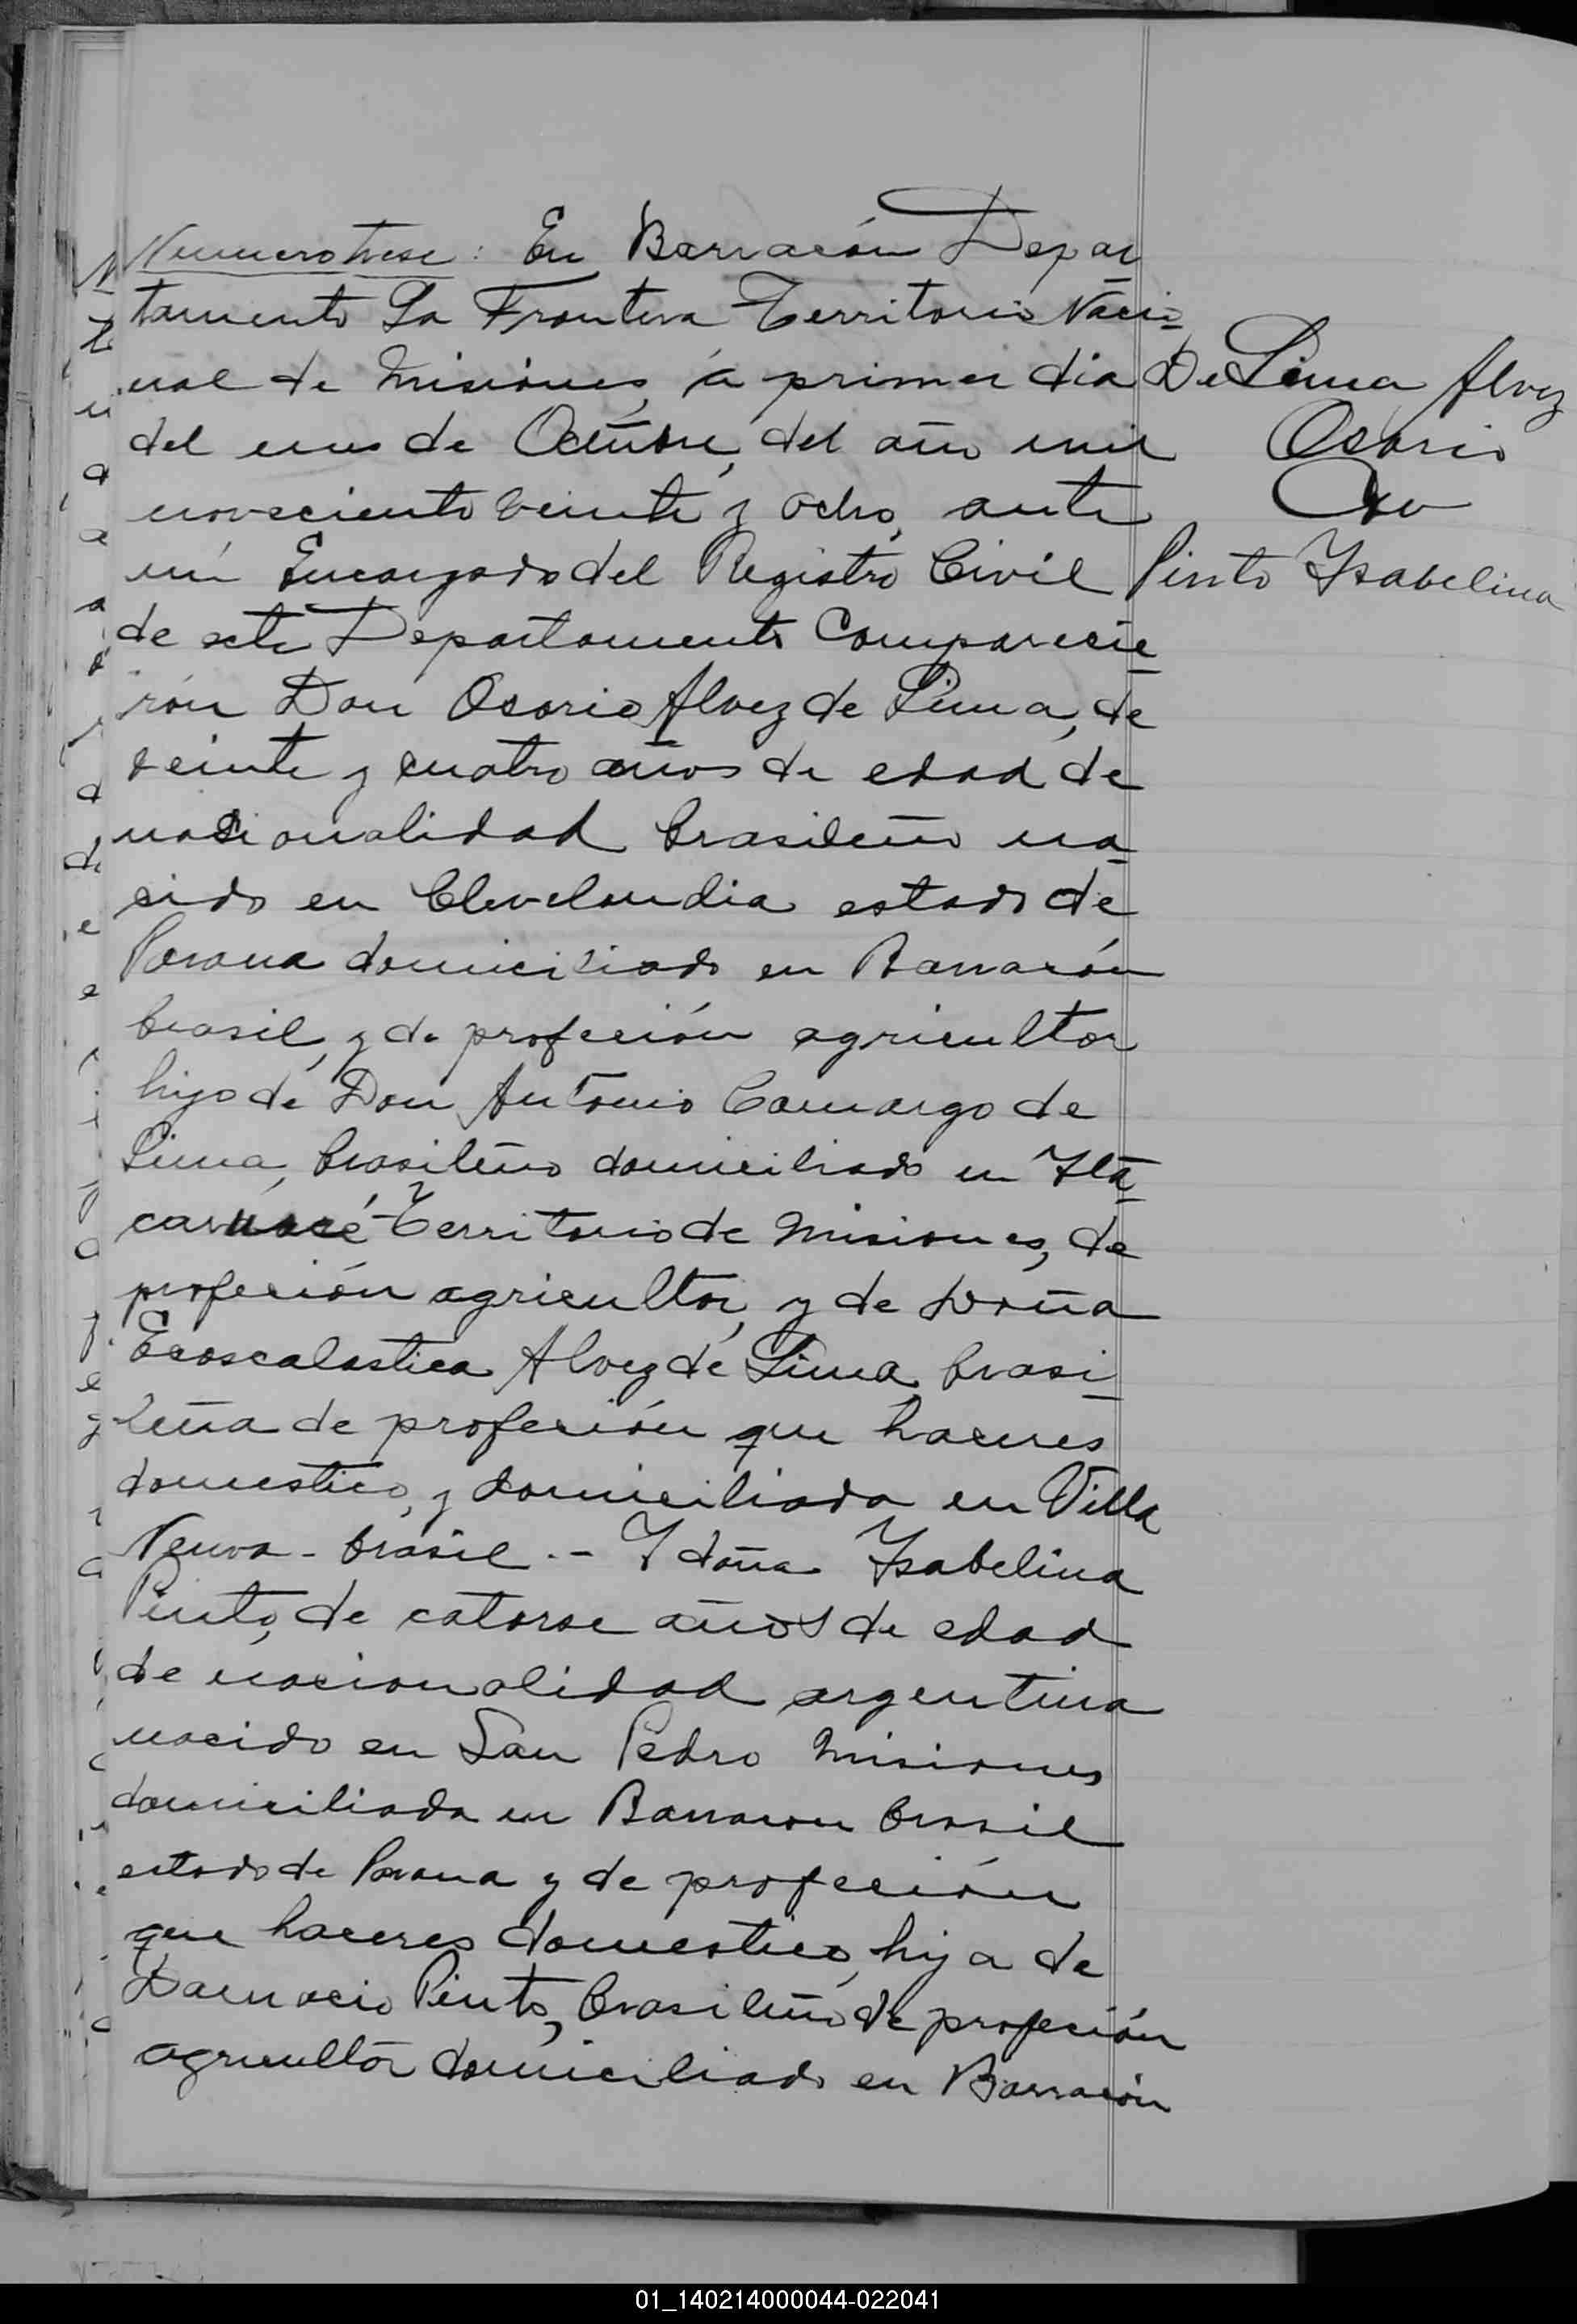 Numero trese: En Barracón Depar
tamento La Frontera Territorio Nacio
nal de Misiones, á primer dia
del mes de Octubre, del año mil
novesciento veinte y ocho, ante
mi Encargado del Registro Civil
de este Departamento Comparecie
rón Don Osorio Alvez de Lima, de
veinte y cuatro años de edad de
nasionalidad brasileño na
cido en Clevelandia estado de
Parana domiciliado en Barracón
brasil, y de profeción agricultor
hijo de Don Antonio Camargo de
Lima, brasileño domiciliado en Ita
caruaré Territorio de Misiones, de
profeción agricultor, y de Doña
Escoscalastica Alvez de Lima, brasi
leña de profeción que haceres
domestico, y domiciliada en Villa
Neuva - brasil .- Y doña Ysabelina
Pinto, de catorse años de edad
de nacionalidad argentina
nacido en San Pedro Misiones
domiciliada en Barracon brasil
estado de Parana y de profeción
que haceres domestico, hija de
Damacio Pinto, brasileño de profeción
agricultor domiciliado en Barracón
De Lima Alvez
Osorio
Con
Pinto Ysabelina
01_140214000044-022041